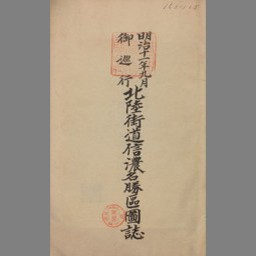 明治十一年九月
御巡行
北陸街道信濃名勝區圖誌